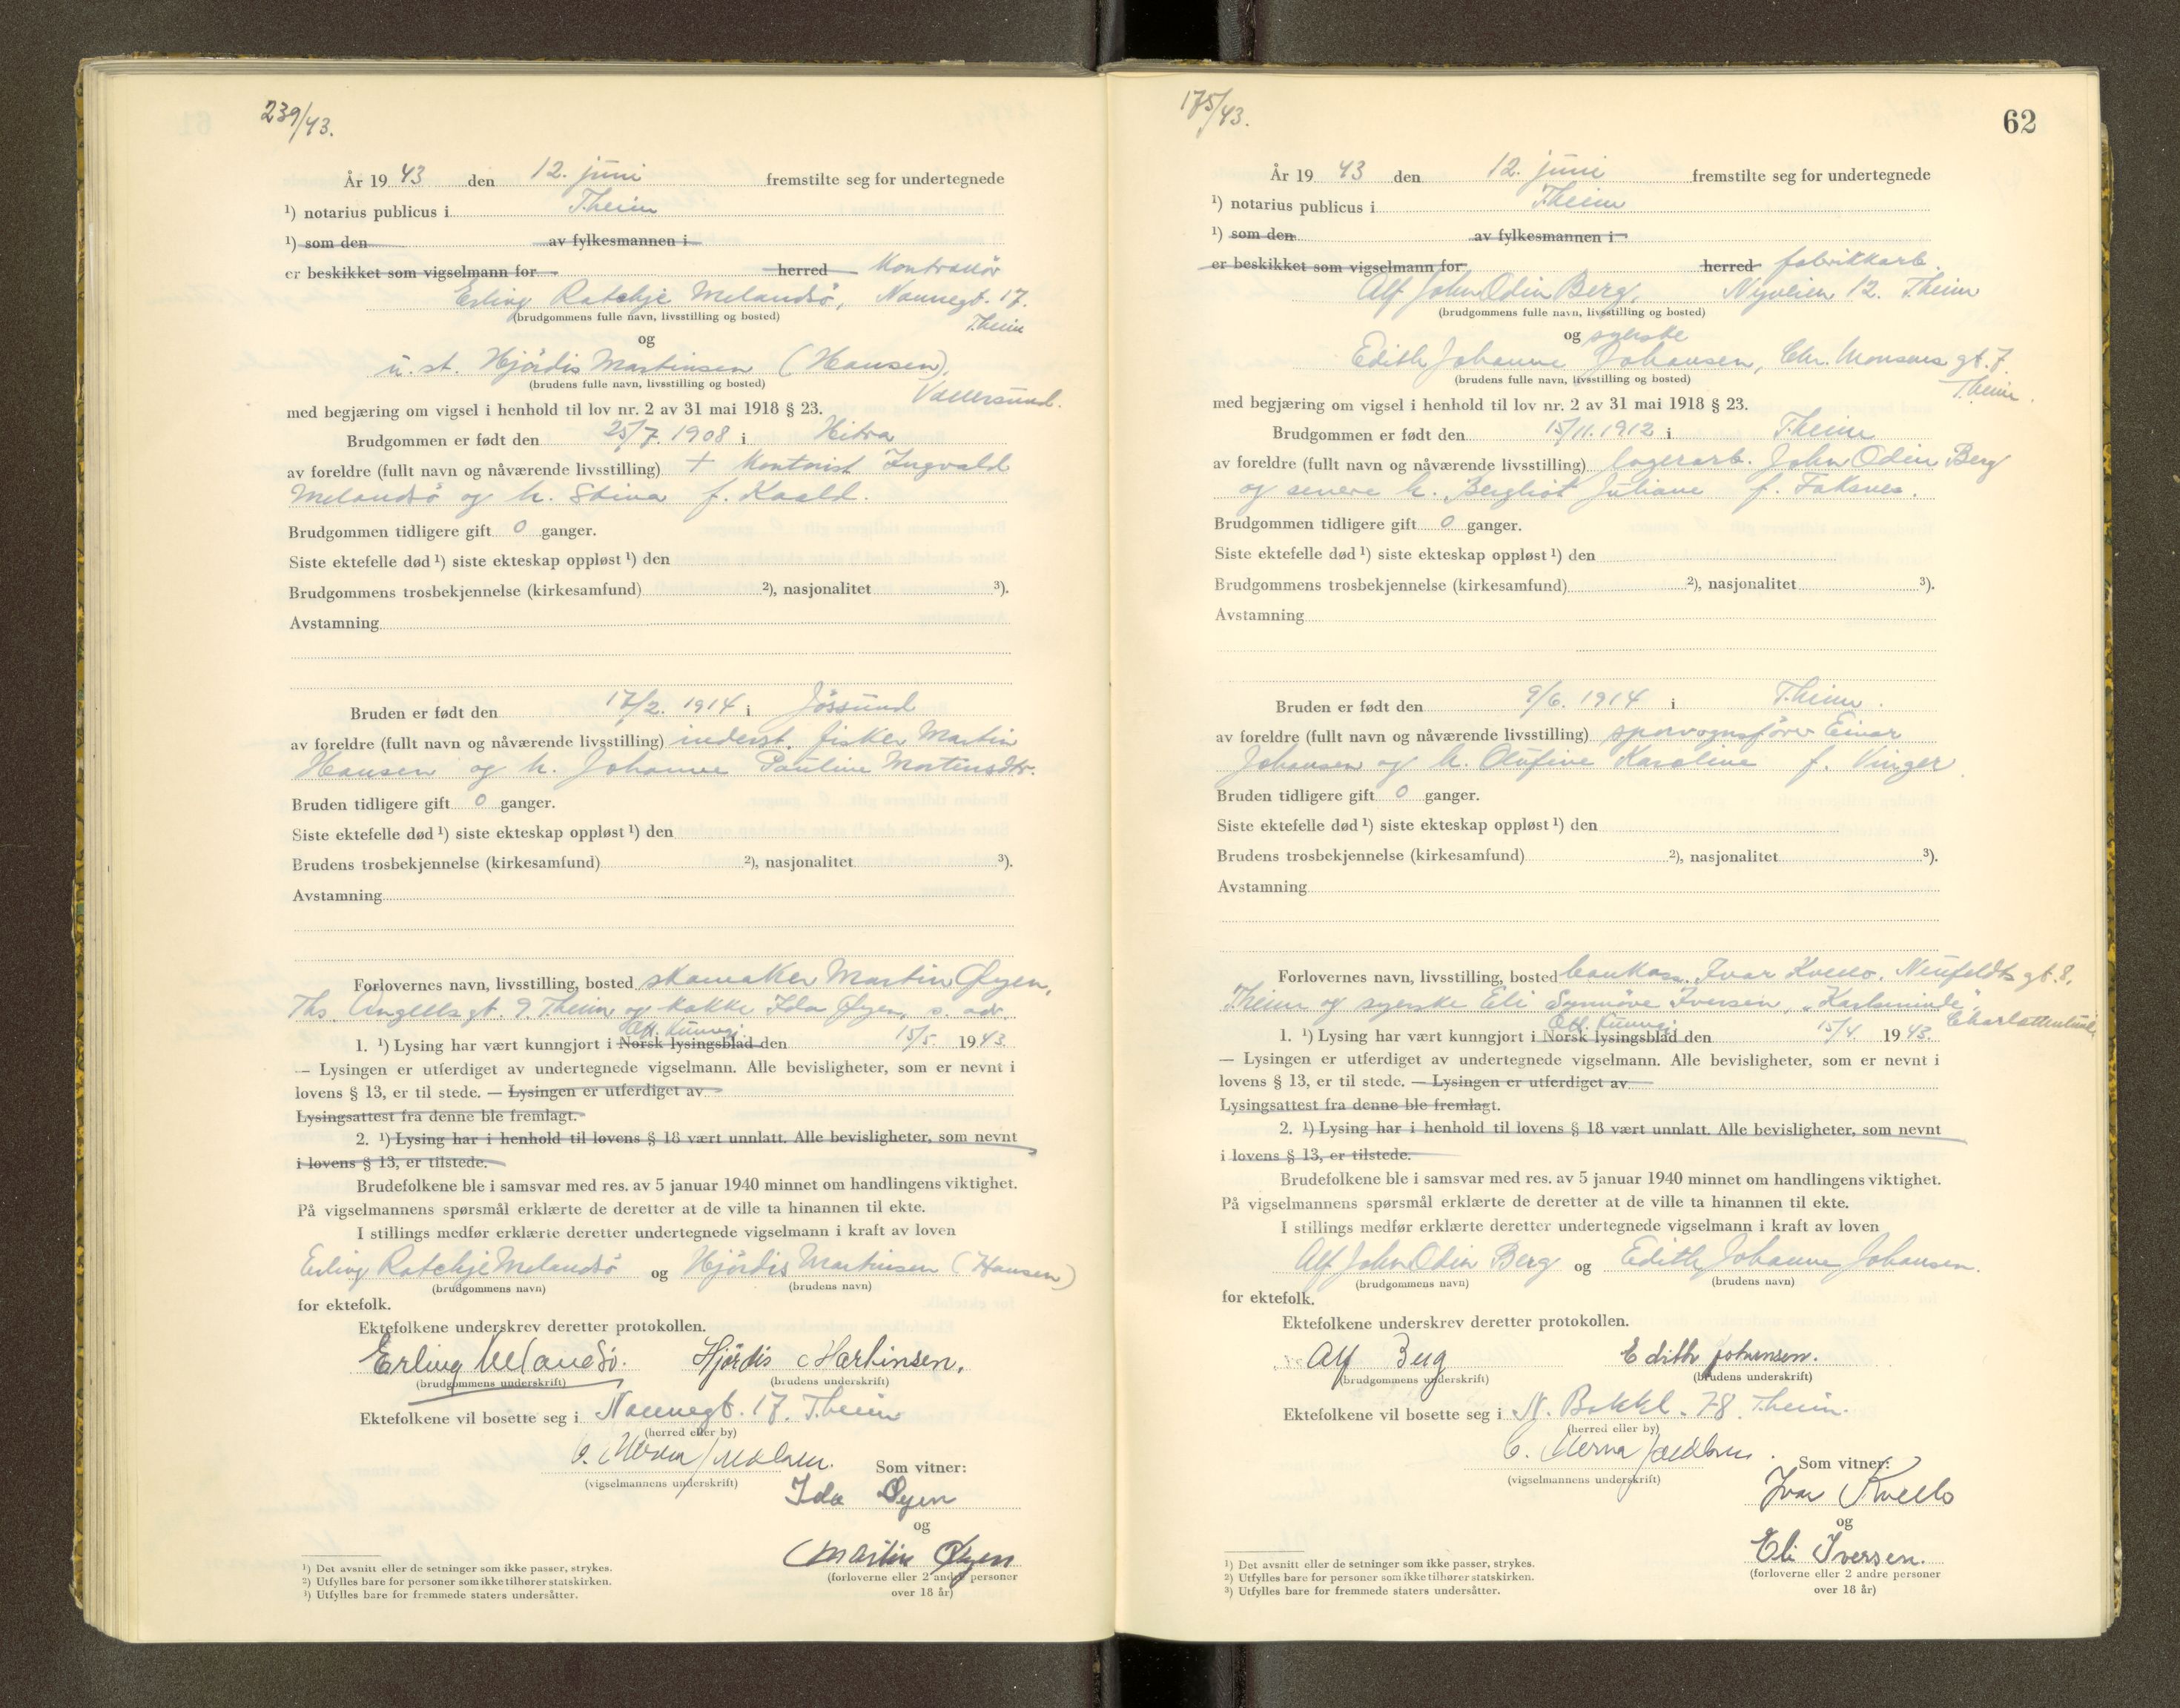 239/43.
År 19 43 den 12. juni fremstilte seg for undertegnede
¹) notarius publicus i T.heim
¹) som den av fylkesmannen i
er beskikket som vigselmann for herred Kontrollør
Erling Ratchje Melandsö, Nannegt. 17.
T.heim
(brudgommens fulle navn, livsstilling og bosted)
og
u. st. Hjördis Martinsen (Hansen),
Vallersund.
(brudens fulle navn, livsstilling og bosted)
med begjæring om vigsel i henhold til lov nr. 2 av 31 mai 1918 § 23.
Brudgommen er født den 25/7. 1908 i Hitra
av foreldre (fullt navn og nåværende livsstilling) + Kontorist Ingvald
Melandsö og h. Stina f. Kaald.
Brudgommen tidligere gift 0 ganger.
Siste ektefelle død ¹) siste ekteskap oppløst ¹) den
Brudgommens trosbekjennelse (kirkesamfund) ²), nasjonalitet ³).
Avstamning
Bruden er født den 17/2. 1914 i Jössund
av foreldre (fullt navn og nåværende livsstilling) inderst. fisker Martin
Hansen og h. Johanne Pauline Mortensdtr.
Bruden tidligere gift 0 ganger.
Siste ektefelle død ¹) siste ekteskap oppløst ¹) den
Brudens trosbekjennelse (kirkesamfund) ²), nasjonalitet ³).
Avstamning
Forlovernes navn, livsstilling, bosted skomaker Martin Øyen,
Ths. Angells gt. 9. T.heim og kokke Ida Øyen, s. adr.
Off. kunngj.
1. ¹) Lysing har vært kunngjort i Norsk lysingsblad den 15/5. 19 43.
— Lysingen er utferdiget av undertegnede vigselmann. Alle bevisligheter, som er nevnt i
lovens § 13, er til stede. — Lysingen er utferdiget av
Lysingsattest fra denne ble fremlagt.
2. ¹) Lysing har i henhold til lovens § 18 vært unnlatt. Alle bevisligheter, som nevnt
i lovens § 13, er tilstede.
Brudefolkene ble i samsvar med res. av 5 januar 1940 minnet om handlingens viktighet.
På vigselmannens spørsmål erklærte de deretter at de ville ta hinannen til ekte.
I stillings medfør erklærte deretter undertegnede vigselmann i kraft av loven
Erling Ratchje Melandsö og Hjördis Martinsen (Hansen)
(brudgommens navn) (brudens navn)
for ektefolk.
Ektefolkene underskrev deretter protokollen.
Erling Melandsö. Hjördis Martinsen.
(brudgommens underskrift) (brudens underskrift)
Ektefolkene vil bosette seg i Nannegt. 17. T.heim
(herred eller by)
(vigselmannens underskrift)
Som vitner:
Ida Øyen
og
Martin Øyen
(forloverne eller 2 andre personer
over 18 år)
¹) Det avsnitt eller de setninger som ikke passer, strykes.
²) Utfylles bare for personer som ikke tilhører statskirken.
³) Utfylles bare for fremmede staters undersåtter.
175/43.
62
År 19 43 den 12. juni fremstilte seg for undertegnede
¹) notarius publicus i T.heim
¹) som den av fylkesmannen i
er beskikket som vigselmann for herred fabrikkarb.
Alf John Odin Berg, Nyveien 12. T.heim
(brudgommens fulle navn, livsstilling og bosted)
og syerske
Edith Johanne Johansen, Chr. Monsens gt. 7.
T.heim.
(brudens fulle navn, livsstilling og bosted)
med begjæring om vigsel i henhold til lov nr. 2 av 31 mai 1918 § 23.
Brudgommen er født den 15/11. 1912 i T.heim
av foreldre (fullt navn og nåværende livsstilling) lagerarb. John Odin Berg
og senere h. Bergliot Juliane f. Faksnes.
Brudgommen tidligere gift 0 ganger.
Siste ektefelle død ¹) siste ekteskap oppløst ¹) den
Brudgommens trosbekjennelse (kirkesamfund) ²), nasjonalitet ³).
Avstamning
Bruden er født den 9/6. 1914 i T.heim.
av foreldre (fullt navn og nåværende livsstilling) sporvognsfører Einar
Johansen og h. Olufine Karoline f. Vinger
Bruden tidligere gift 0 ganger.
Siste ektefelle død ¹) siste ekteskap oppløst ¹) den
Brudens trosbekjennelse (kirkesamfund) ²), nasjonalitet ³).
Avstamning
Forlovernes navn, livsstilling, bosted bankass. Ivar Kvello. Neufeldts gt. 8,
T.heim og syerske Eli Synnöve Iversen, "Karlsminde"
Charlottenlund,
Off. kunngj.
1. ¹) Lysing har vært kunngjort i Norsk lysingsblad den 15/4. 19 43.
— Lysingen er utferdiget av undertegnede vigselmann. Alle bevisligheter, som er nevnt i
lovens § 13, er til stede. — Lysingen er utferdiget av
Lysingsattest fra denne ble fremlagt.
2. ¹) Lysing har i henhold til lovens § 18 vært unnlatt. Alle bevisligheter, som nevnt
i lovens § 13, er tilstede.
Brudefolkene ble i samsvar med res. av 5 januar 1940 minnet om handlingens viktighet.
På vigselmannens spørsmål erklærte de deretter at de ville ta hinannen til ekte.
I stillings medfør erklærte deretter undertegnede vigselmann i kraft av loven
Alf John Odin Berg og Edith Johanne Johansen.
(brudgommens navn) (brudens navn)
for ektefolk.
Ektefolkene underskrev deretter protokollen.
Alf Berg Edith Johansen.
(brudgommens underskrift) (brudens underskrift)
Ektefolkene vil bosette seg i N. Bakkl. 78. T.heim.
(herred eller by)
(vigselmannens underskrift)
Som vitner:
Ivar Kvello
og
Eli Iversen.
(forloverne eller 2 andre personer
over 18 år)
¹) Det avsnitt eller de setninger som ikke passer, strykes.
²) Utfylles bare for personer som ikke tilhører statskirken.
³) Utfylles bare for fremmede staters undersåtter.